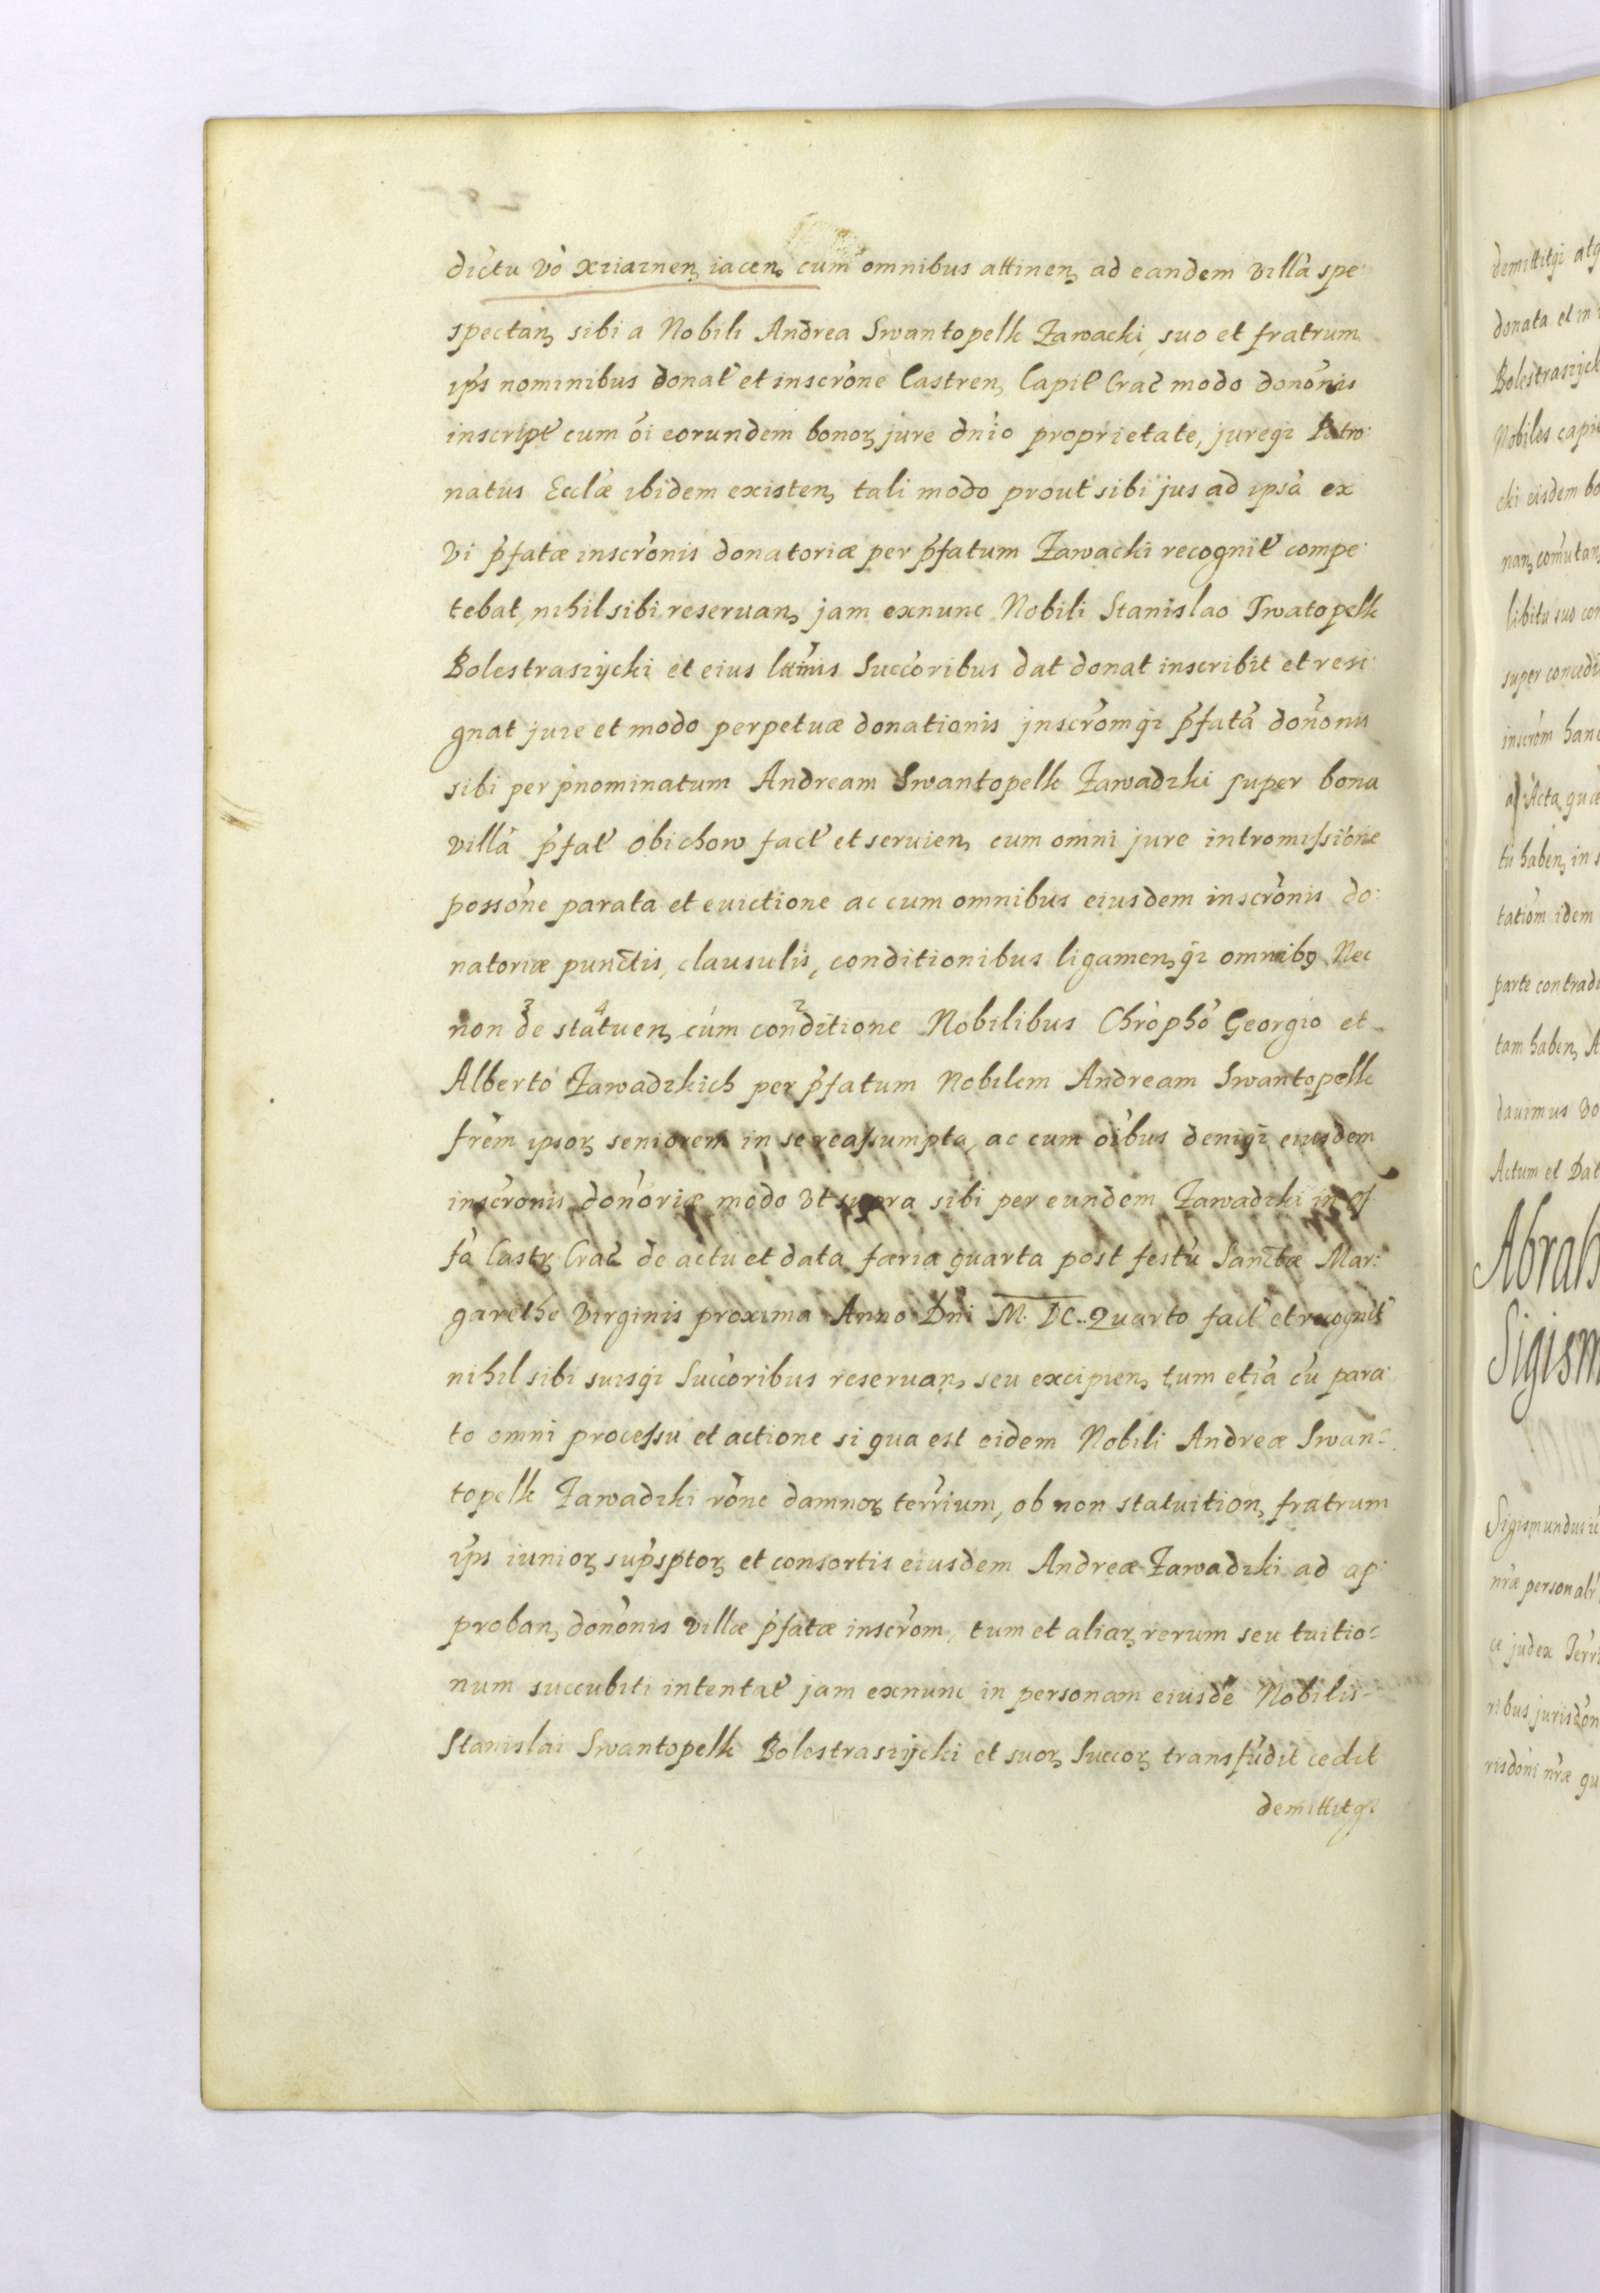 dictu vo xziaznen, iacen, cum omnibus attinen, ad eandem villā spe:
spectan, sibi a Nobili Andrea Swantopelk Zawacki, suo et fratrum
ip̃s nominibus donat̃ et inscrõne Castren, Capit̃ Crac̃ modo donõnis
inscript̃ cum õi eorundem bonoꝝ jure dñio proprietate, jureqꝫ Patro:
natus Eccl̃æ ibidem existen, tali modo prout sibi jus ad ipsã ex
vi p̃fatæ inscrõnis donatoriæ per p̃fatum Zawacki recognit̃ compe:
tebat, nihil sibi reseruan, jam exnunc Nobili Stanislao Swatopelk
Bolestraszÿcki et eius Succõribus dat donat inscribit et resi:
gnat jure et modo perpetuæ donationis jnscrõmqꝫ p̃fatã donõnis
sibi per p̃nominatum Andream Swantopelk Zawadzki super bona
villã p̃fat̃ Obichow fact̃ et seruien, cum omni jure intromissiõne
possõne parata et euictione ac cum omnibus eiusdem inscrõnis do:
natoriæ punctis, clausulis, conditionibus ligamen,qꝫ omnibꝫ Nec
non de statuen, cum conditione Nobilibus Chrõphõ Georgio et
Alberto Zawadzkich per p̃fatum Nobilem Andream Swantopelk
frẽm ipsoꝝ seniorem in se reassumpta, ac cum oĩbus deniqꝫ eiusdem
inscrõnis donõriæ modo vt supra sibi per eundem Zawadzki in of
fõ Castꝝ Crac̃ de actu et data færia quarta post festũ Sanctæ Mar:
garethe Virginis proxima Anno Dñi M. DC. Quarto fact̃ et recognit̃
nihil sibi suisqꝫ Succõribus reseruan, seu excipien, tum etiã cũ para:
to omni processu et actione si qua est eidem Nobili Andreæ Swan=
topelk Zawadzki rõne damnoꝝ terr̃ium, ob non statuition, fratrum
ip̃s iunioꝝ sup̃sptoꝝ et consortis eiusdem Andreæ Zawadzki ad ap:
proban, donõnis villæ p̃fatæ inscrõm, tum et aliaꝝ rerum seu tuitio=
num succubiti intentat̃ jam exnunc in personam eiusdẽ Nobilis
Stanislai Swantopelk Bolestraszÿcki et suoꝝ Succoꝝ transfudit cedit
demittitqꝫ
demittitqꝫ
donata et in
Nobiles
cki eisdem bo
nan, com̃utan,
libitu suo con
super
inscrõm hanc
Acta quæ
tu haben, in
idem
parte
tam haben, A
dauimus
Actum et Dat
Abrah
Sigism
Sigismundus
nr̃æ
judex Terr̃